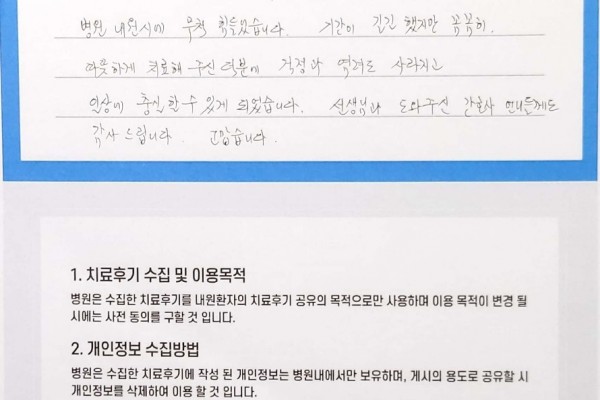 병원 내원시에 무척 힘들었습니다. 기간이 길긴 했지만 꼼꼼히,
따뜻하게 치료해 주신 덕분에 걱정과 염려도 사라지고
일상에 충실할 수 있게 되었습니다. 선생님과 도와주신 간호사 언니들께도
감사 드립니다. 고맙습니다.
1. 치료후기 수집 및 이용목적
병원은 수집한 치료후기를 내원환자의 치료후기 공유의 목적으로만 사용하며 이용 목적이 변경 될
시에는 사전 동의를 구할 것 입니다.
2. 개인정보 수집방법
병원은 수집한 치료후기에 작성 된 개인정보는 병원내에서만 보유하며, 게시의 용도로 공유할 시
개인정보를 삭제하여 이용 할 것 입니다.